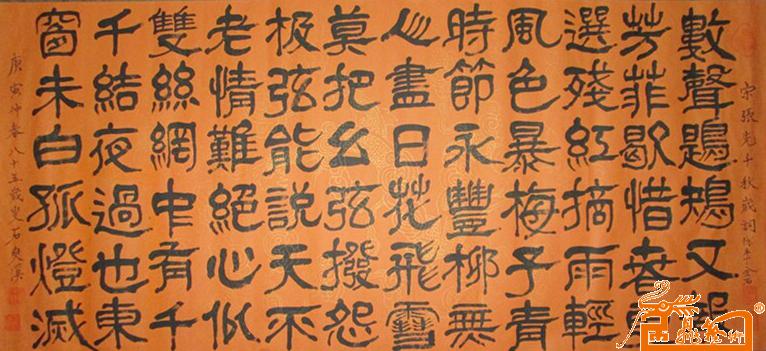 宋張先千秋歲詞
數聲鶗鴂又報
芳菲歇惜春更
選殘紅摘雨輕
風色暴梅子青
時節永豐柳無
人盡日花飛雪
莫把幺弦撥怨
极弦能說天不
老情難絕心似
雙絲網中有千
千結夜過也東
窗未白孤燈滅
庚寅仲春八十五歲叟石